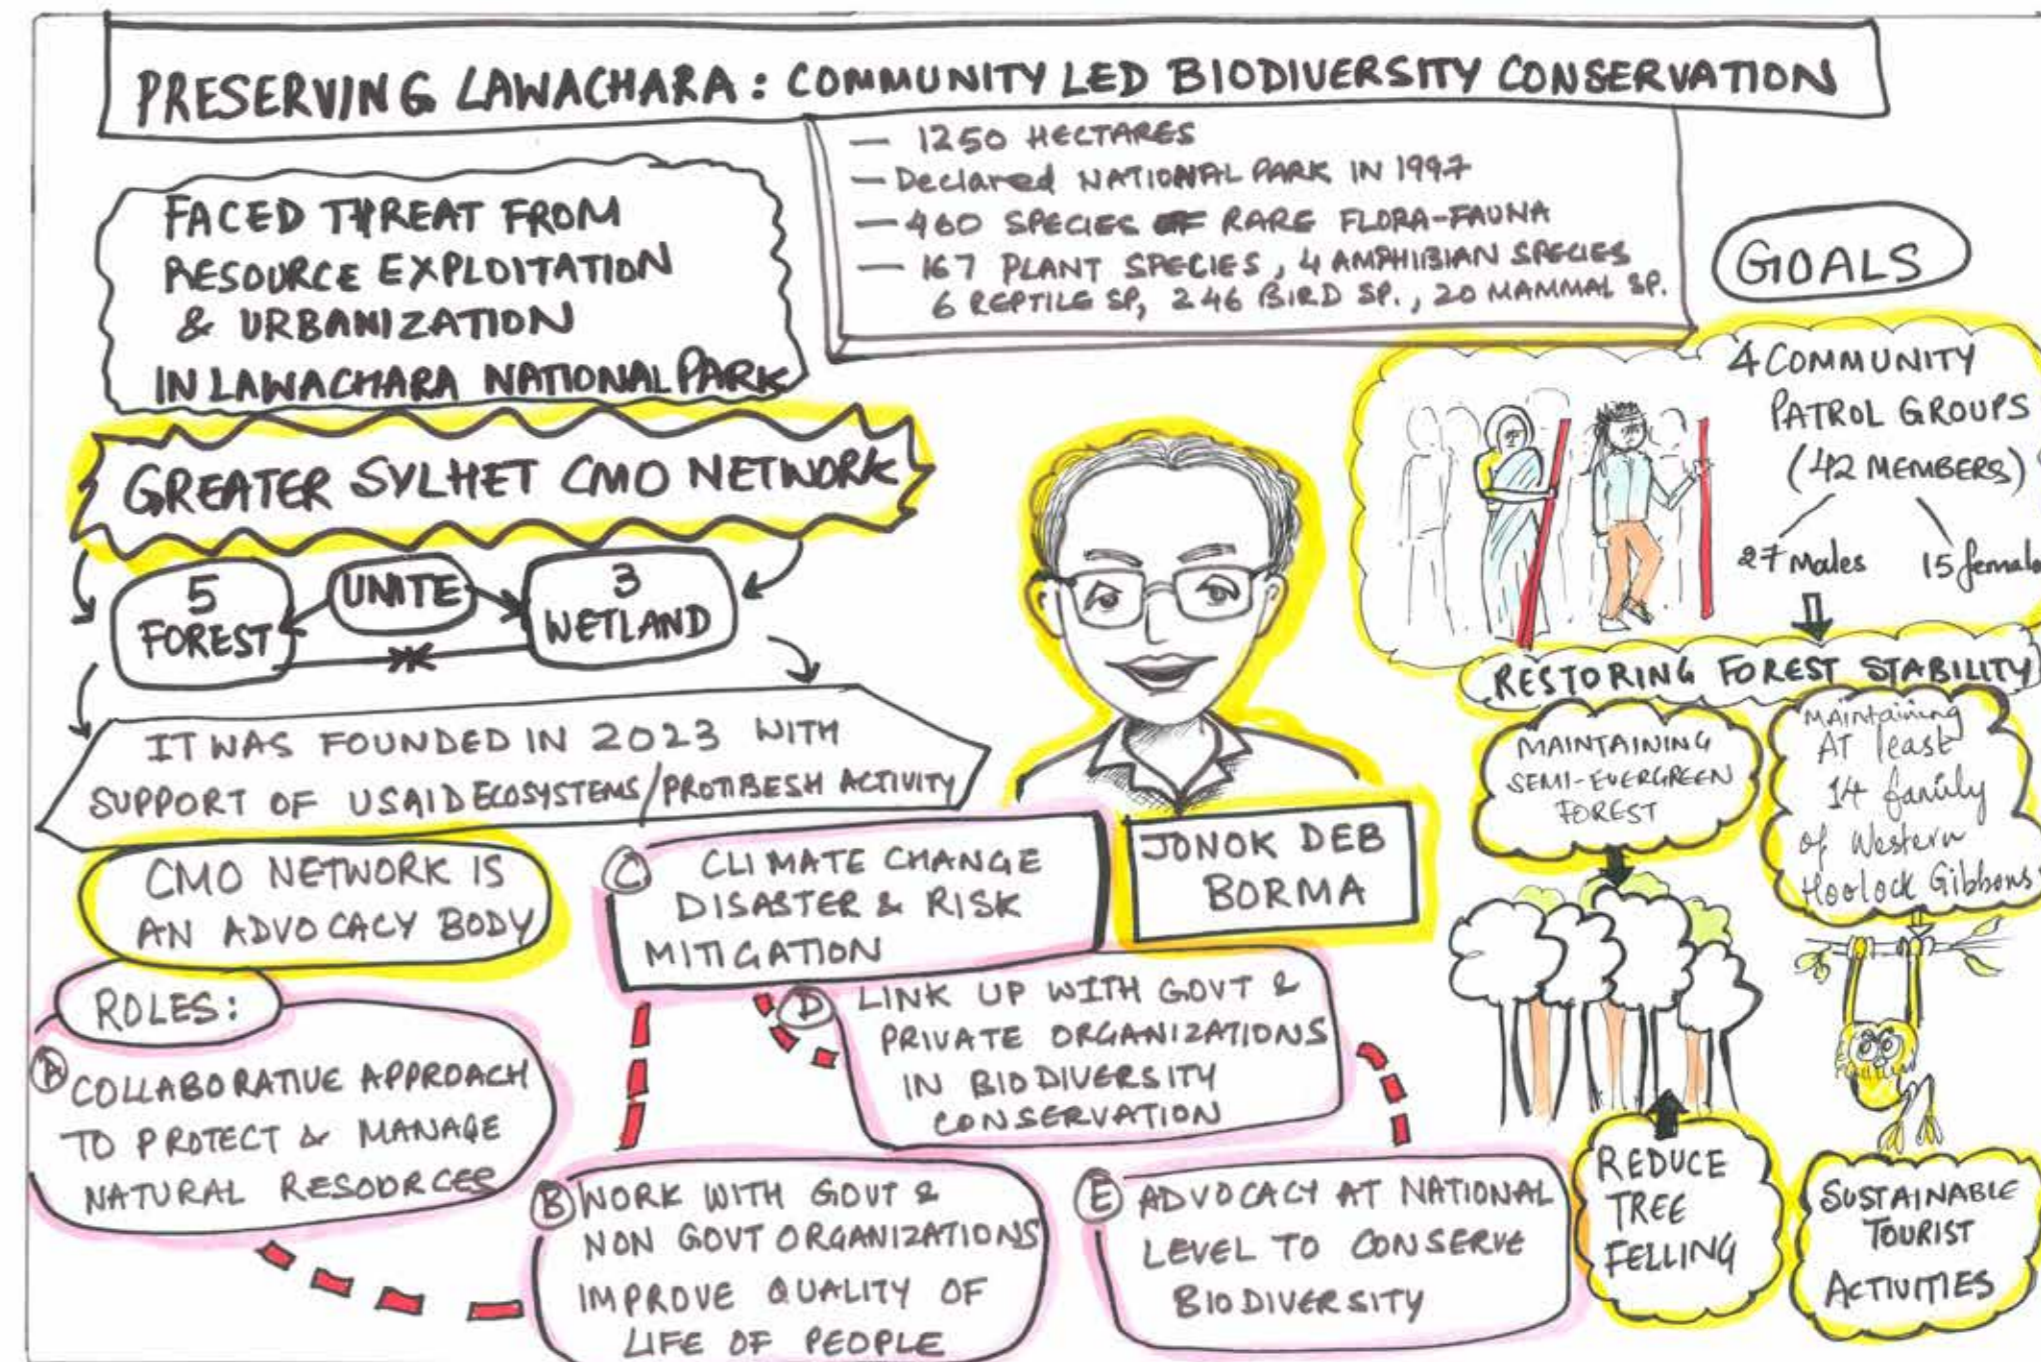 PRESERVING LAWACHARA: COMMUNITY LED BIODIVERSITY CONSERVATION
— 1250 HECTARES
— Declared NATIONAL PARK IN 1997
— 460 SPECIES OF RARE FLORA-FAUNA
— 167 PLANT SPECIES, 4 AMPHIBIAN SPECIES
6 REPTILE SP, 246 BIRD SP., 20 MAMMAL SP.
FACED THREAT FROM
RESOURCE EXPLOITATION
& URBANIZATION
IN LAWACHARA NATIONAL PARK
GREATER SYLHET CMO NETWORK
5
FOREST
UNITE
3
WETLAND
IT WAS FOUNDED IN 2023 WITH
SUPPORT OF USAID ECOSYSTEMS/PROTIBESH ACTIVITY
CMO NETWORK IS
AN ADVOCACY BODY
JONOK DEB
BORMA
ROLES:
A COLLABORATIVE APPROACH
TO PROTECT & MANAGE
NATURAL RESOURCES
B WORK WITH GOVT &
NON GOVT ORGANIZATIONS
IMPROVE QUALITY OF
LIFE OF PEOPLE
C CLIMATE CHANGE
DISASTER & RISK
MITIGATION
D LINK UP WITH GOVT &
PRIVATE ORGANIZATIONS
IN BIODIVERSITY
CONSERVATION
E ADVOCACY AT NATIONAL
LEVEL TO CONSERVE
BIODIVERSITY
GOALS
4 COMMUNITY
PATROL GROUPS
(42 MEMBERS)
27 Males
15 female
RESTORING FOREST STABILITY
MAINTAINING
SEMI-EVERGREEN
FOREST
MAintaining
AT least
14 family
of Western
Hoolock Gibbons
REDUCE
TREE
FELLING
SUSTAINABLE
TOURIST
ACTIVITIES